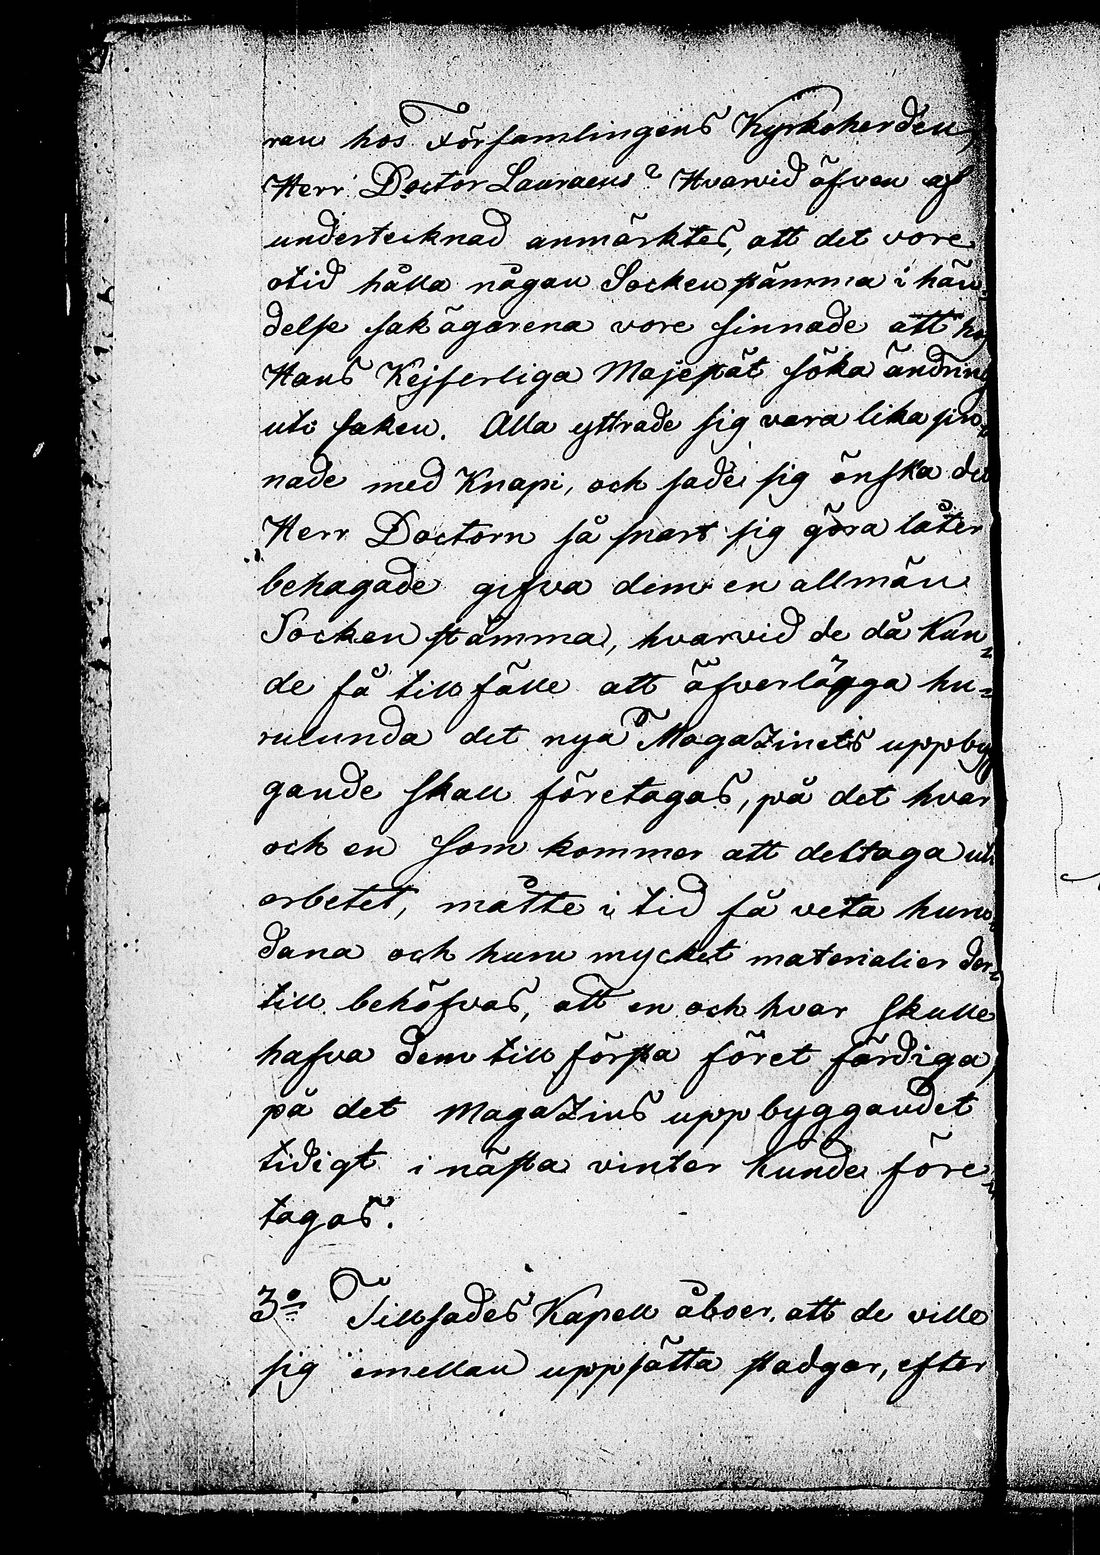 ran hos Församlingens Kyrkoherden,
Herr Doctor Lauraeus? Hvarvid äfven af
undertecknad anmärktes, att det vore
otid hålla någon Sockenstämma i hän-
delse sakägarena vore sinnade att hos
Hans Kejserliga Majestät söka ändring
uti saken. Alla yttrade sig vara lika sin-
nade med Knapi, och sade sig önska det
Herr Doctorn så snart sig göra låter
behagade gifva dem en allmän
Sockenstämma, hvarvid de då kun-
de få tillfälle att äfverlägga hu-
rulunda det nya Magazinets uppbyg
gande skall företagas, på det hvar
och en som kommer att deltaga uti
arbetet, måtte i tid få veta huru-
dana och huru mycket materialier der-
till behöfvas, att en och hvar skulle
hafva dem till första föret färdiga,
på det Magazins uppbyggandet
tidigt i nästa vinter kunde före-
tagas.
3:o Tillsades Kapell åboer att de ville
sig emellan uppsätta stadgar, efter